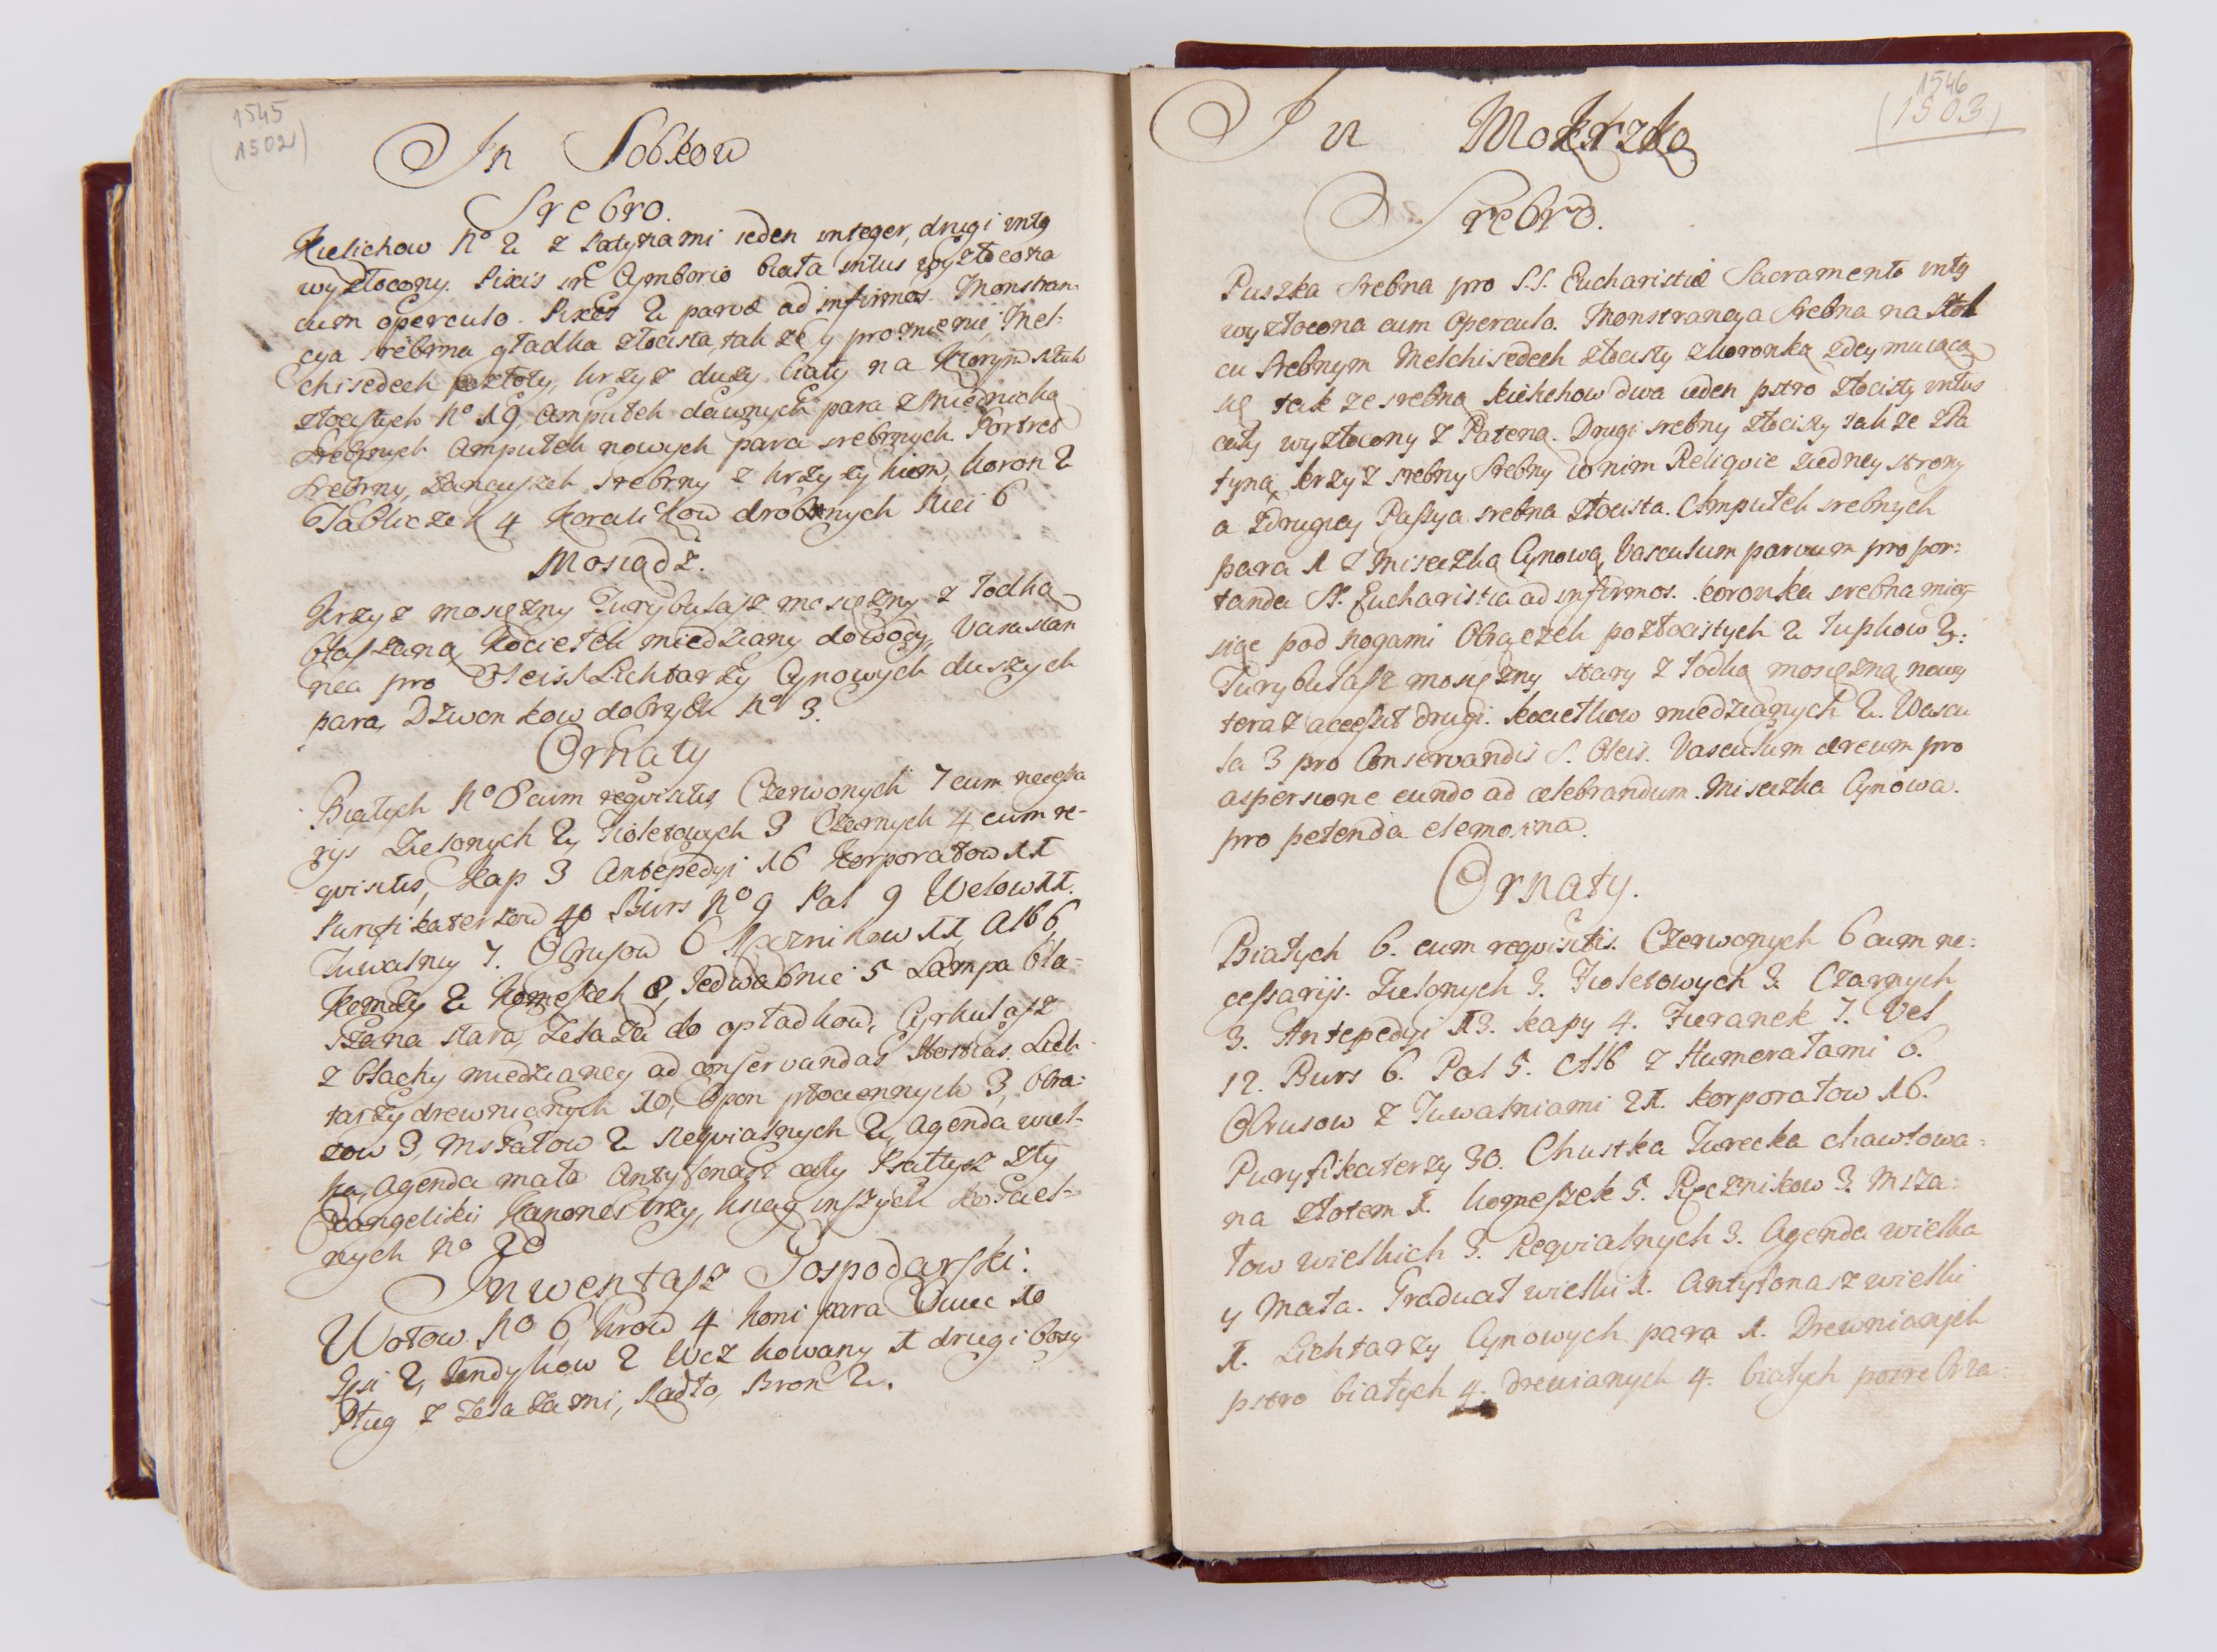 1545
(1502)
In Sobkow
Srebro.
Kielichow No 2 z Patynami ieden integer, drugi intg
wyzłocony. Pixis in Cymborio biała intus wyzłocona
cum operculo. Pixes 2 parvæ ad infirmos. Monstran-
cya srebrna gładka złocista, tak że y promienie, Mel-
chisedech pozłoty, krzyz duzy biały na ktorym sztuk
złocistych No 19, Ampułek dawnych para z miednicką
srebrnych Ampułek nowych para srebrnych. Portret
srebrny, Łancuszek srebrny z krzyzykiem, koron 2
Tabliczek 4 Koralikow drobnych Nici 6
Mosiądz.
Krzyz mosięzny Turybularz mosięzny z łodką
blaszaną, Kociełek miedziany do wody, Vasa stan
nea pro Oleis Lichtarzy Cynowych duszych
para, Dzwonkow dobrych No 3.
Ornaty
Białych No 8 cum reqvisitis, Czerwonych 7 cum necessa
rys Zielonych 2, Fioletowych 3 Czarnych 4 cum re-
qvisitis, Kap 3 Antepedyi 16 Korporałow 11
Purifikaterzow 40 Burs No 9 Pal 9 Welow 11.
Tuwalny 7. Obrusow 6 Ręcznikow 11, Alb 6,
Komży 2 Komeszek 8, Jedwabnie 5 Lampa bla-
szana stara, Zelaza do opładkow, Cyrkularz
z blachy miedzianey ad conservandas Hostias. Lich-
tarzy drewnianych 10, Opon płociennych 3, Obra-
zow 3, Mszałow 2 Reqvialnych 2, Agenda wiel-
ka, Agenda mała Antyfonarz cały Psałtyrz zły
Ewangeliki Kanonestrzy, ksiąg inszych kościel-
nych No 20
Inwentarz Gospodarski.
Wołow No 6, krow 4 koni para Owiec 10
Gęsi 2, Jendykow 2 Woz kowany 1 drugi bosy
Pług z zelazami, Radło, Bron 2.
1546
(1503)
In Mokrzko
Srebro.
Puszka Srebna pro S.S. Eucharistiæ Sacramento intg
wyzłocona cum Operculo. Monstrancya Srebna na Stol
cu Srebnym Melchisedech złocisty z koronką zdeymuiącą
się tak ze srebną kielichow dwa ieden pstro złocisty intus
cały wyzłocony z Pateną. Drugi srebny złocisty takze z Pa
tyną, krzyz srebny Srebny w nim Religvie z iedney strony
a z drugiey Passya srebna złocista. Ampułek srebnych
para 1 z Miseczką Cynową, Vasculum parvum pro por-
tanda SS. Eucharistia ad infirmos. koronka srebna mie-
siąc pod nogami Obrączek pozłocistych 2 Tupkow 2.
Turybularz mosięzny stary z łodką mosięzną, nowy
teraz accessit drugi. kociełkow miedzianych 2. Vascu
la 3 pro Conservandis S. Oleis. Vasculum æreum pro
aspersione eundo ad celebrandum. Miseczka Cynowa.
pro petenda elemosina.
Ornaty.
Białych 6. cum reqvisitis. Czerwonych 6 cum ne-
cessarijs. Zielonych 3. Fioletowych 3. Czarnych
3. Antepedyi 13. kapy 4. Firanek 7. Vel
12. Burs 6. Pal 5. Alb z Humerałami 6.
Obrusow z Tuwalniami 21. korporałow 16.
Puryfikaterzy 30. Chustka Turecka chawtowa-
na złotem 1. komeszek 5. Ręcznikow 3. Msza-
łow wielkich 3. Reqvialnych 3. Agenda wielka
y Mała. Graduał wielki 1. Antyfonarz wielki
1. Lichtarzy Cynowych para 1. Drewnianych
pstro białych 4. drewianych 4. białych posrebrza-